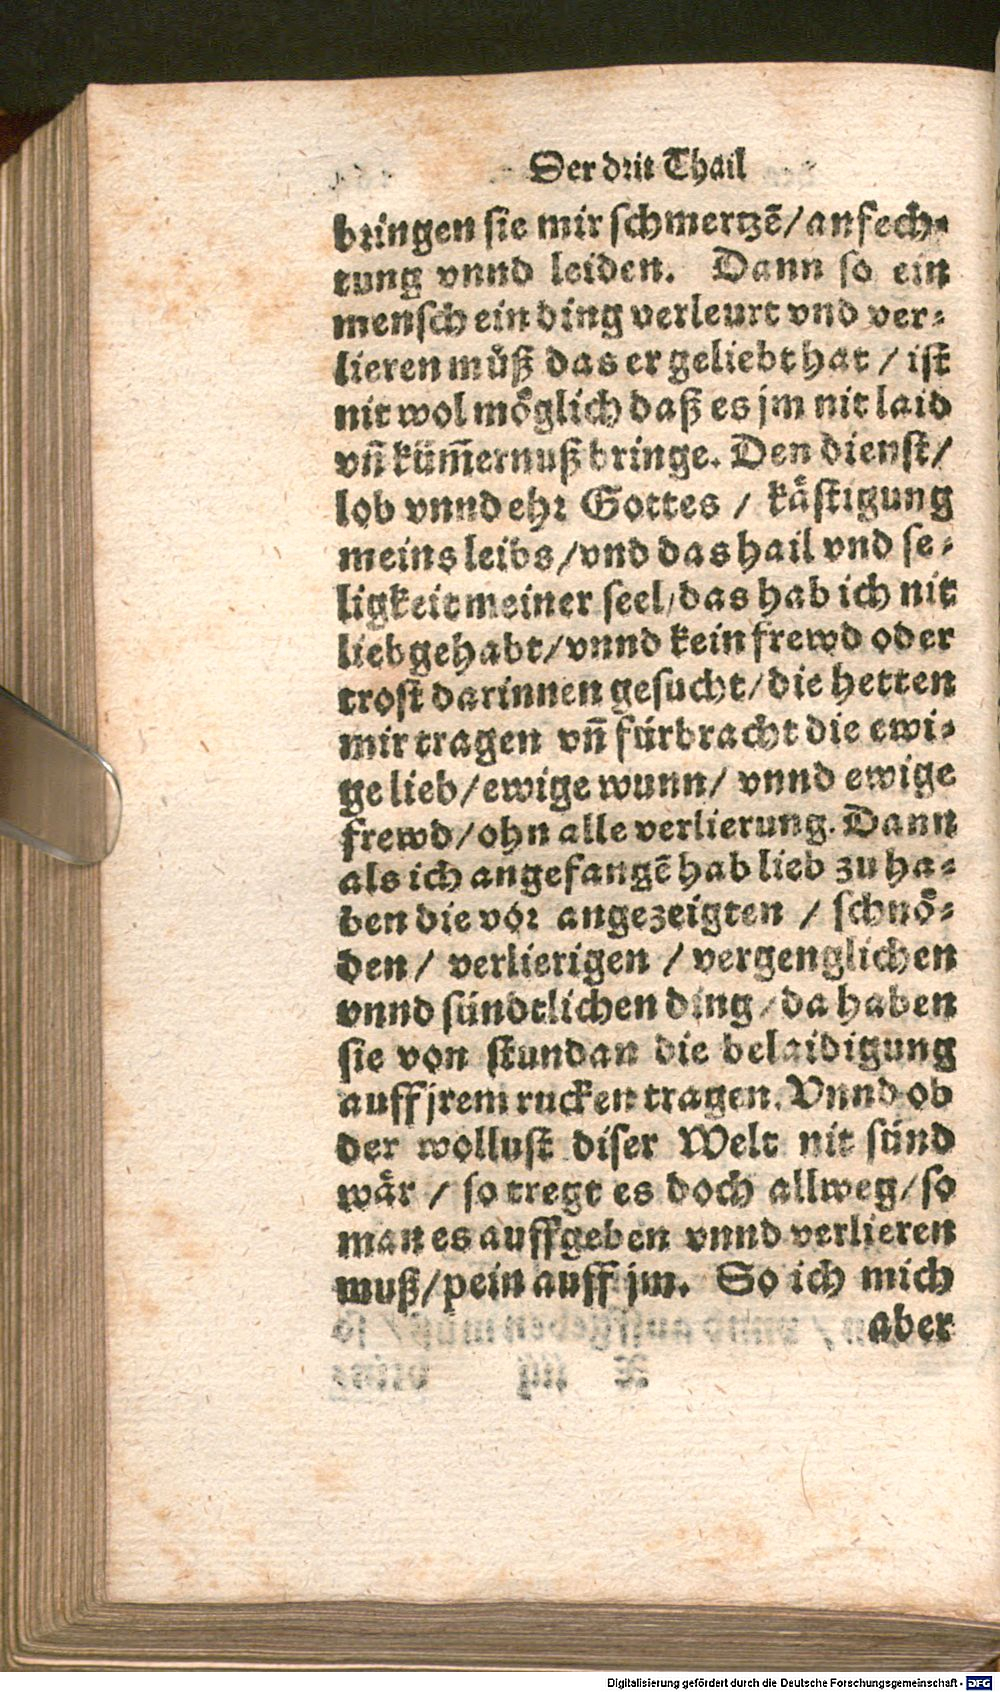 Der drit Thail
bringen sie mir schmertzē/ anfech-
tung vnnd leiden. Dann so ein
mensch ein ding verleurt vnd ver-
lieren muͦß das er geliebt hat / ist
nit wol moͤglich daß es jm nit laid
vn̄ küm̄ernuß bringe. Den dienst/
lob vnnd ehr Gottes / kaͤstigung
meins leibs/vnd das hail vnd se-
ligkeit meiner seel/das hab ich nit
lieb gehabt/vnnd kein frewd oder
trost darinnen gesucht/die hetten
mir tragen vn̄ fürbracht die ewi-
ge lieb/ewige wunn/ vnnd ewige
frewd/ohn alle verlierung. Dann
als ich angefangē hab lieb zu ha-
ben die vor angezeigten / schnoͤ-
den/ verlierigen / vergenglichen
vnnd sündtlichen ding/da haben
sie von stundan die belaidigung
auff jrem rucken tragen. Vnnd ob
der wollust diser Welt nit sünd
waͤr / so tregt es doch allweg/so
man es auffgeben vnnd verlieren
muß/pein auff jm. So ich mich
aber
Digitalisierung gefördert durch die Deutsche Forschungsgemeinschaft - DFG